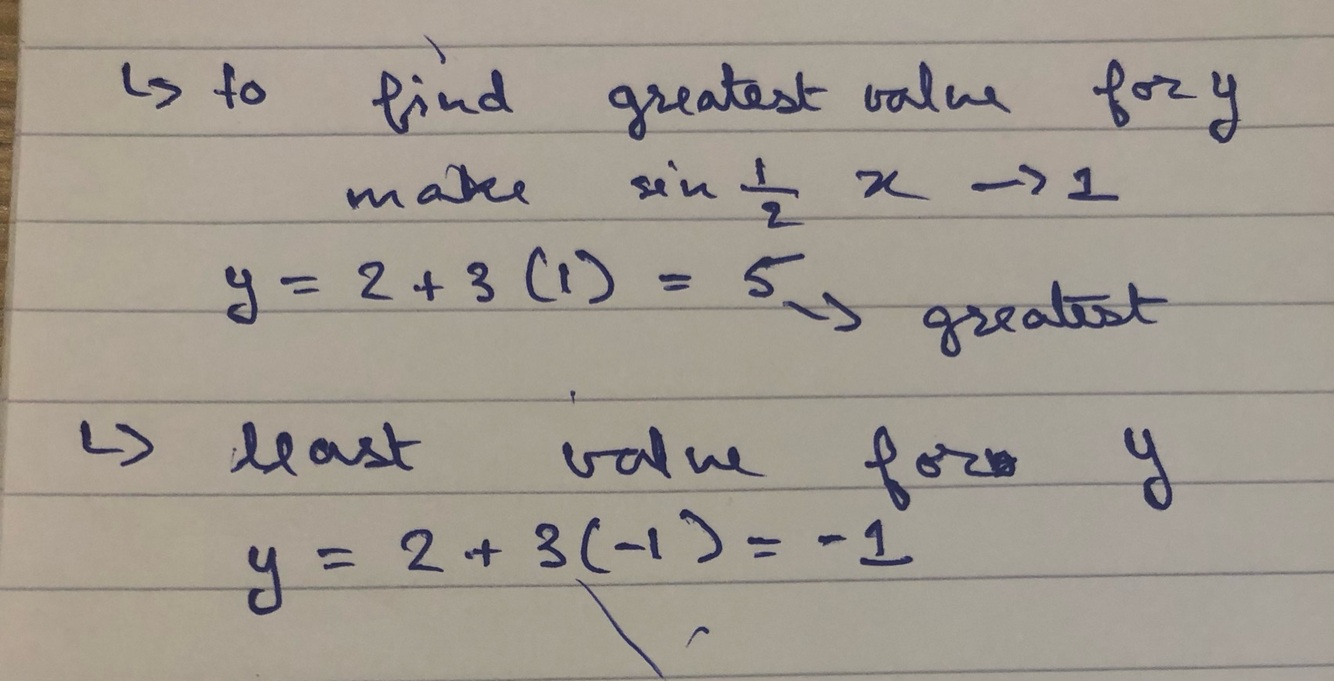 ↳ to find greatest value for y
make sin 1/2 x → 1
y = 2 + 3 (1) = 5 ↳ greatest
↳ least value for y
y = 2 + 3(-1) = -1